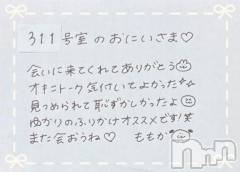 311号室のおにいさま♡
会いに来てくれてありがとう
オキニトーク気付いてよかった
見つめられて恥ずかしかったよ
ゆかりのふりかけオススメです!
また会おうね♡ ももか